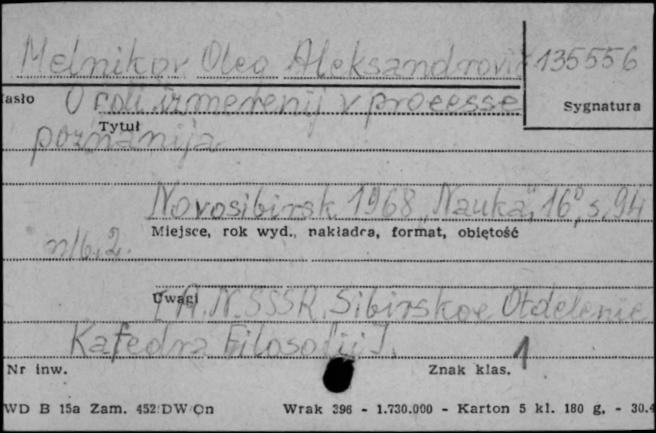 Melnikov Oleg Aleksandrovič 135556
asło O roli izmerenij v processe Sygnatura
Tytuł
poznanija
Novosibirsk 1968 „Nauka", 16°, s. 94
Miejsce, rok wyd., nakładca, format, objętość
n/6, 2.
Uwagi
[A.N. SSSR. Sibirskoe Otdelenie
Kafedra Filosofii].
Nr inw. Znak klas. 1
WD B 15a Zam. 452/DW/Qn Wrak 396 - 1.730.000 - Karton 5 kl. 180 g. - 30.4